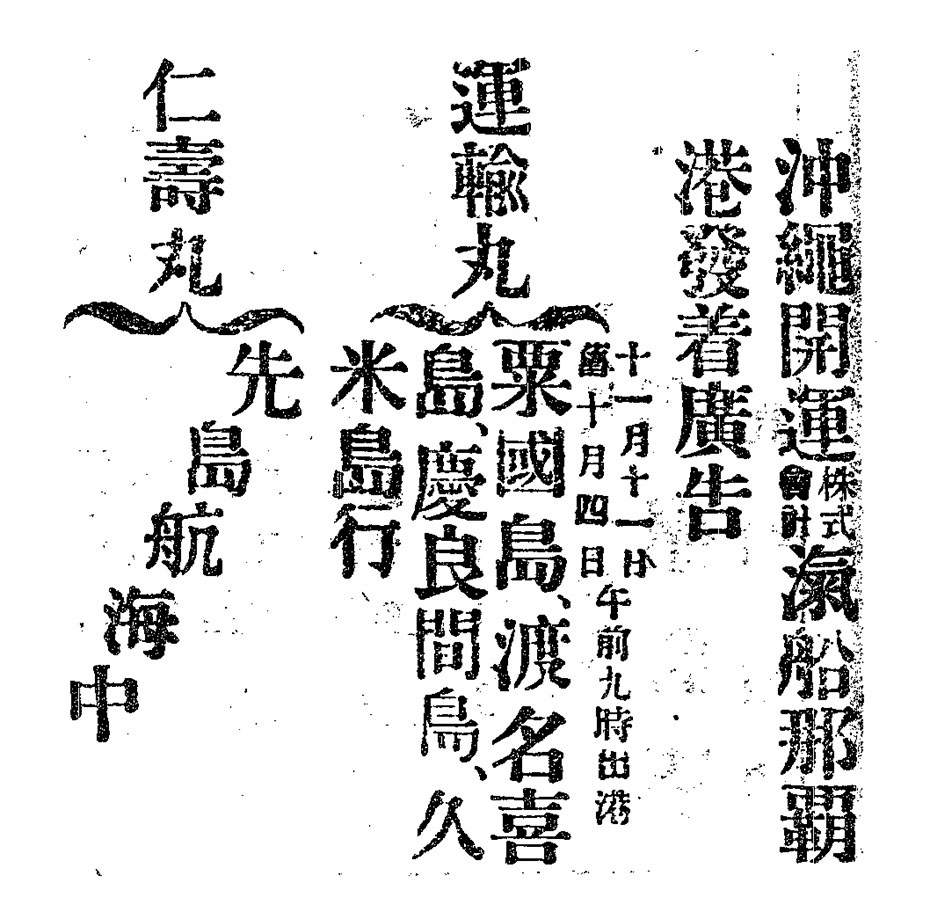 沖繩開運株式會社滊船那覇
港發着廣告
運輸丸
十一月十一日
舊十月四日
午前九時出港
粟國島、渡名喜
島、慶良間島、久
米島行
仁壽丸
先島航海中